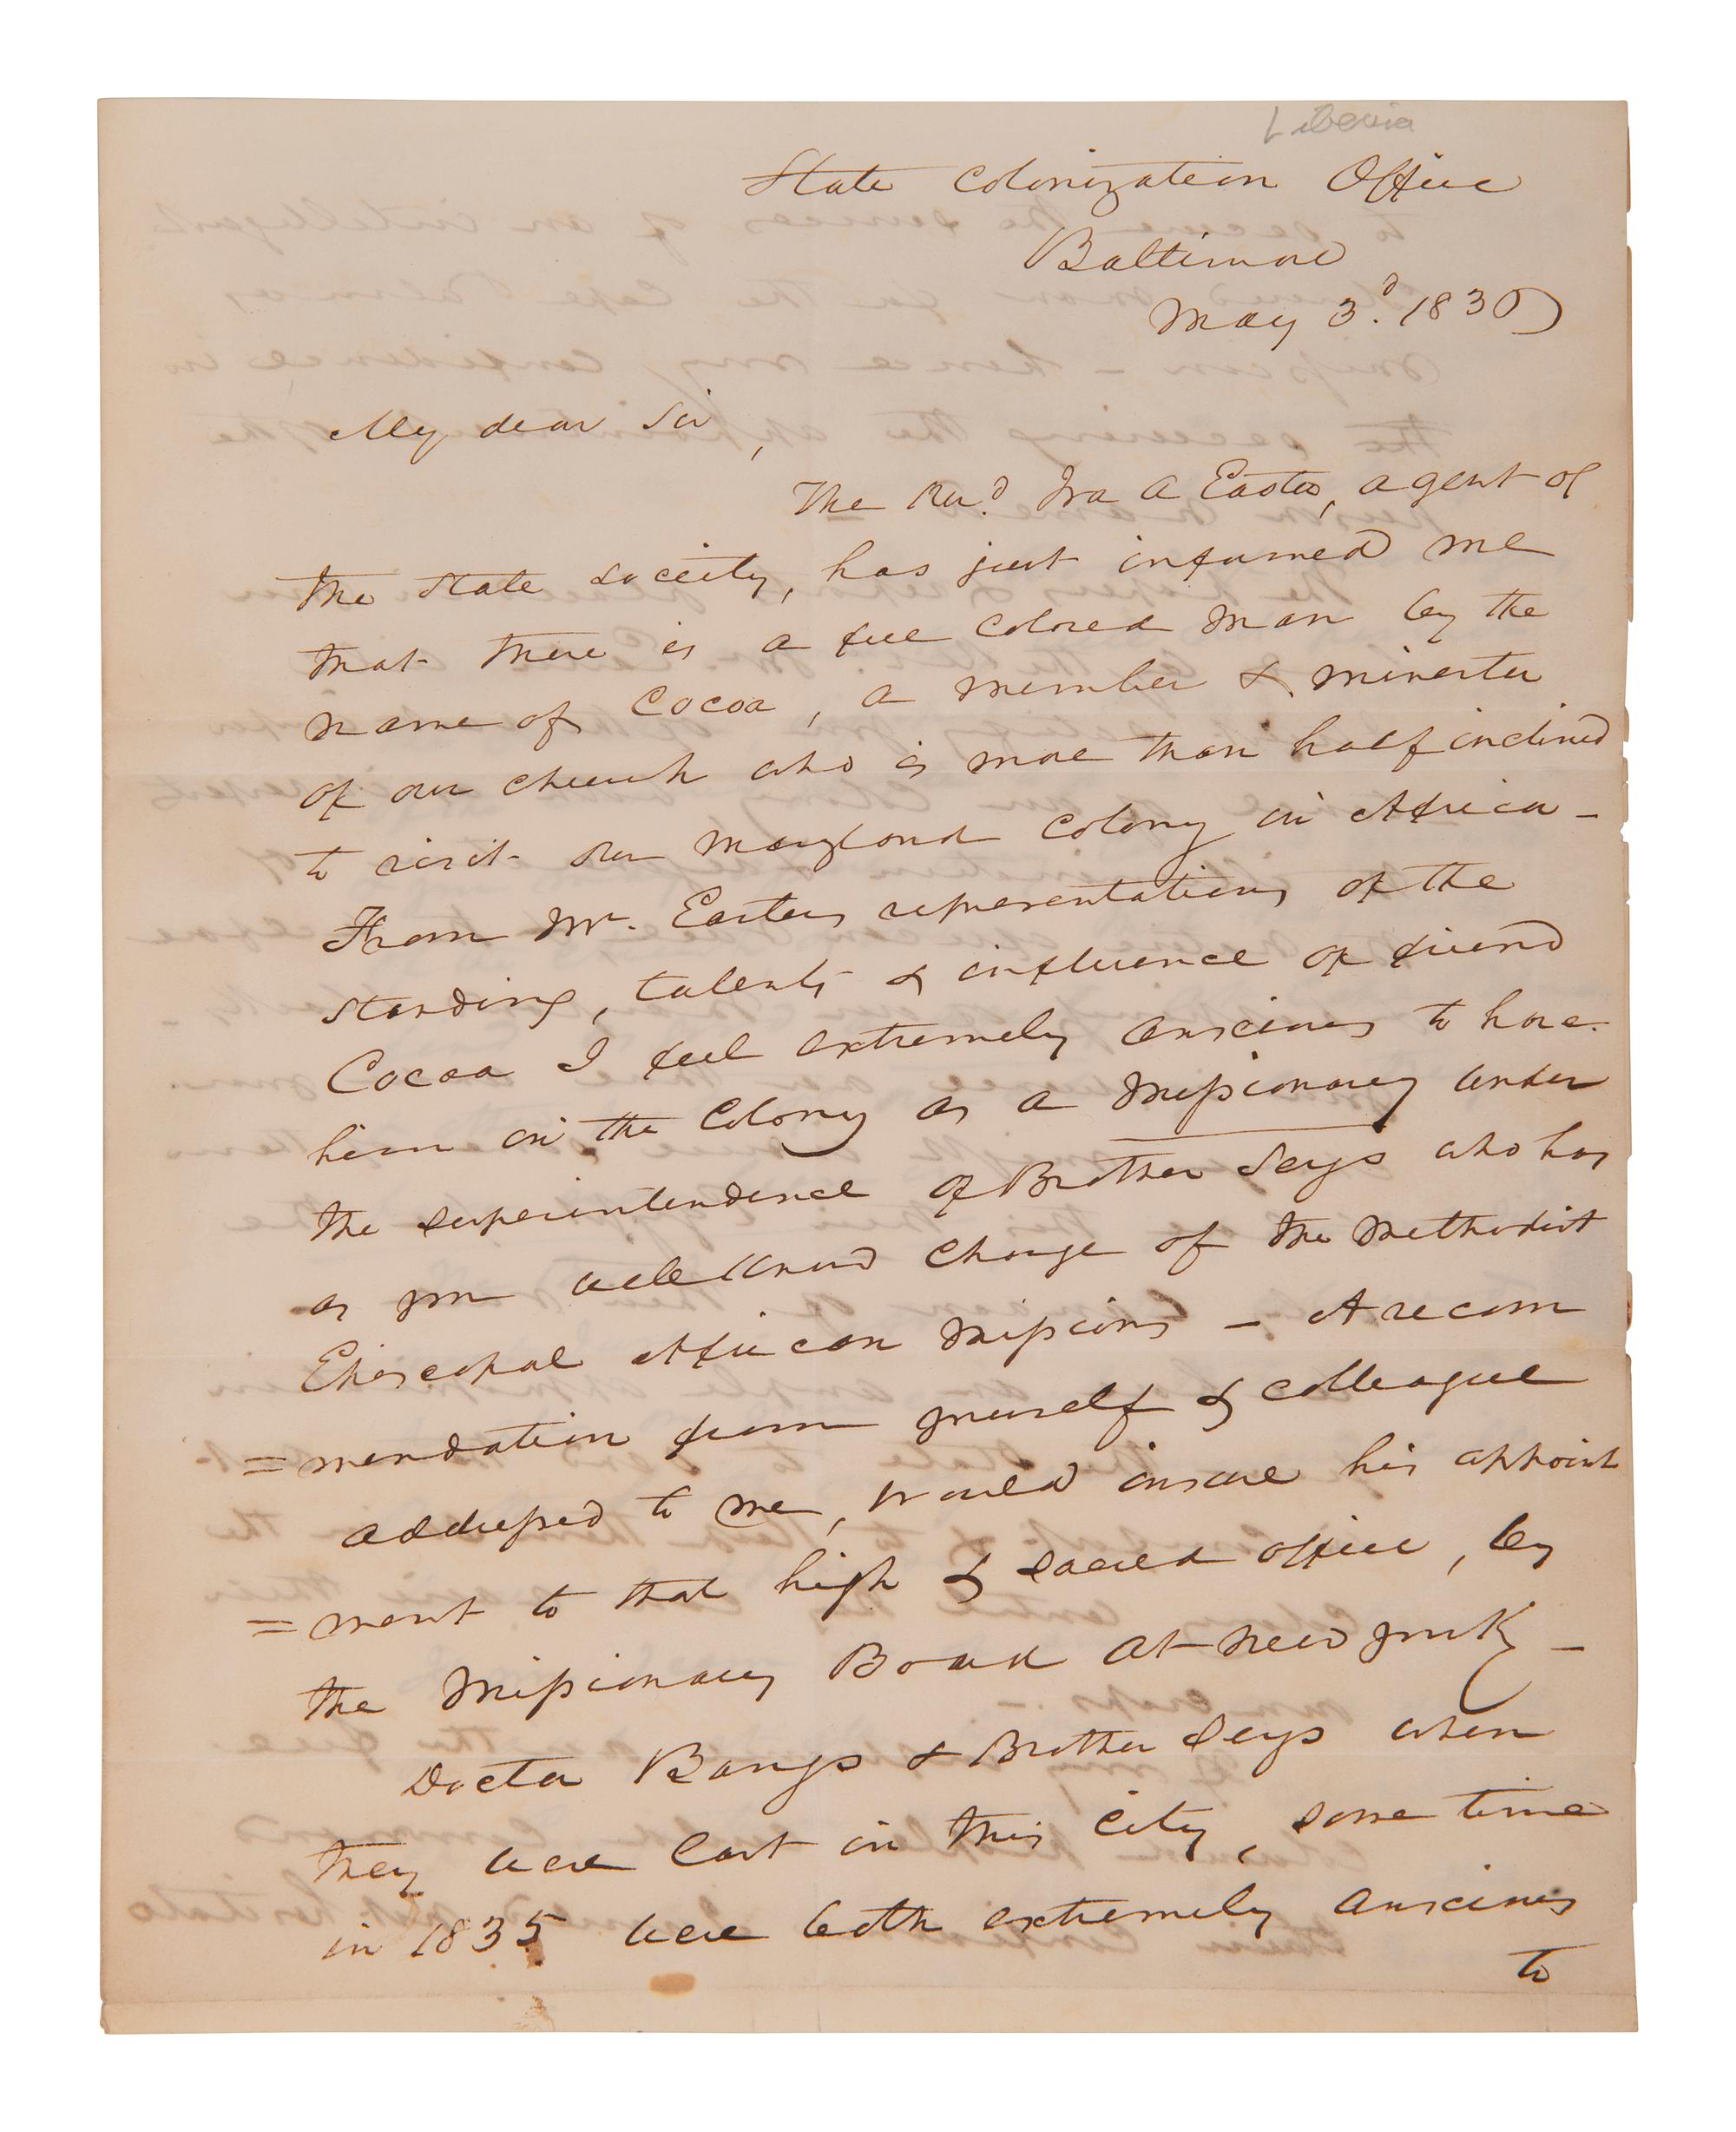 Liberia
State Colonization Office
Baltimore
May 3.d 1836
My dear Sir,
The Revd. Ira A Easter, agent of
the State Society, has just informed me
that there is a free colored man by the
name of Cocoa, a member & minister
of our church who is more than half inclined
to visit our Maryland Colony in Africa –
From Mr. Easters representations of the
standing, talents & influence of friend
Cocoa I feel extremely anxious to have
him in the Colony as a Missionary under
the superintendence of Brother Seys who has
as you well know charge of the Methodist
Episcopal African Missions – A recom
=mendation from yourself & colleague
addressed to me, would insure his appoint
=ment to that high & sacred office, by
the Missionary Board at New York –
Doctor Bangs & Brother Seys when
they were last in this City, some time
in 1835 were both extremely anxious
to